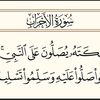 سُورَةُ الْأَحْزَابِ
كَتَهُ يُصَلُّونَ عَلَى النَّبِيِّ
صَلُّوا عَلَيْهِ وَسَلِّمُوا تَسْلِي